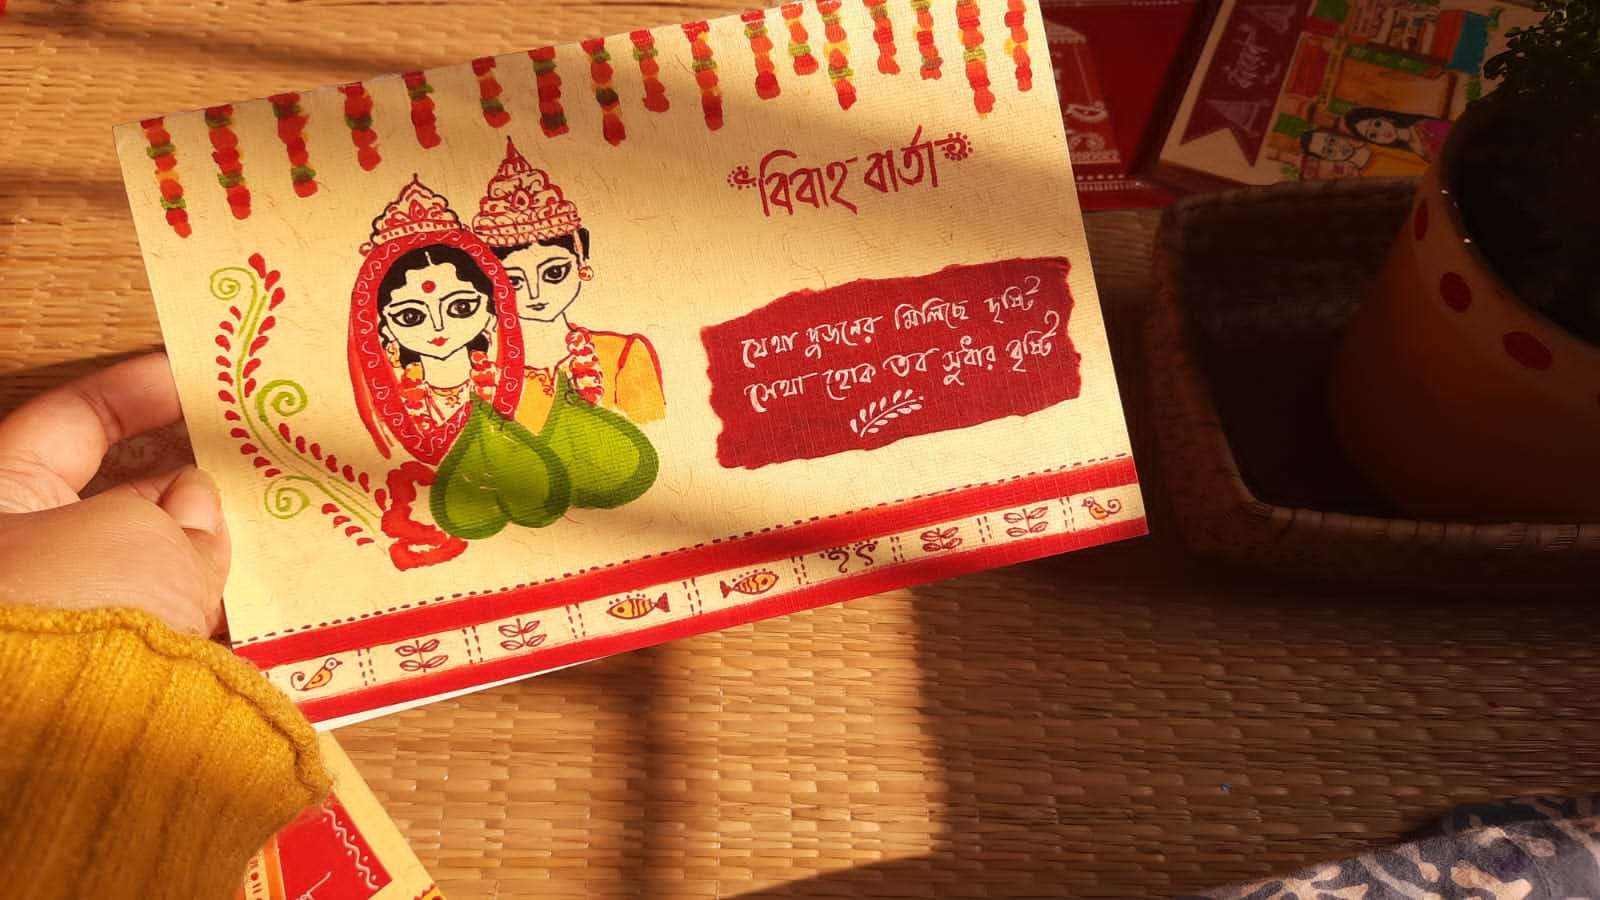 বিবাহ বার্তা
যেথা দুজনের মিলিছে দৃষ্টি
সেথা হোক তব সুধার বৃষ্টি